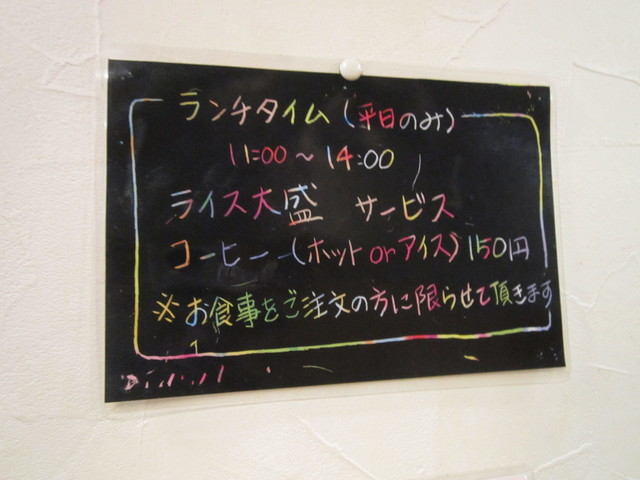 ランチタイム(平日のみ)
11:00～14:00
ライス大盛 サービス
コーヒー(ホットorアイス)150円
※お食事をご注文の方に限らせて頂きます